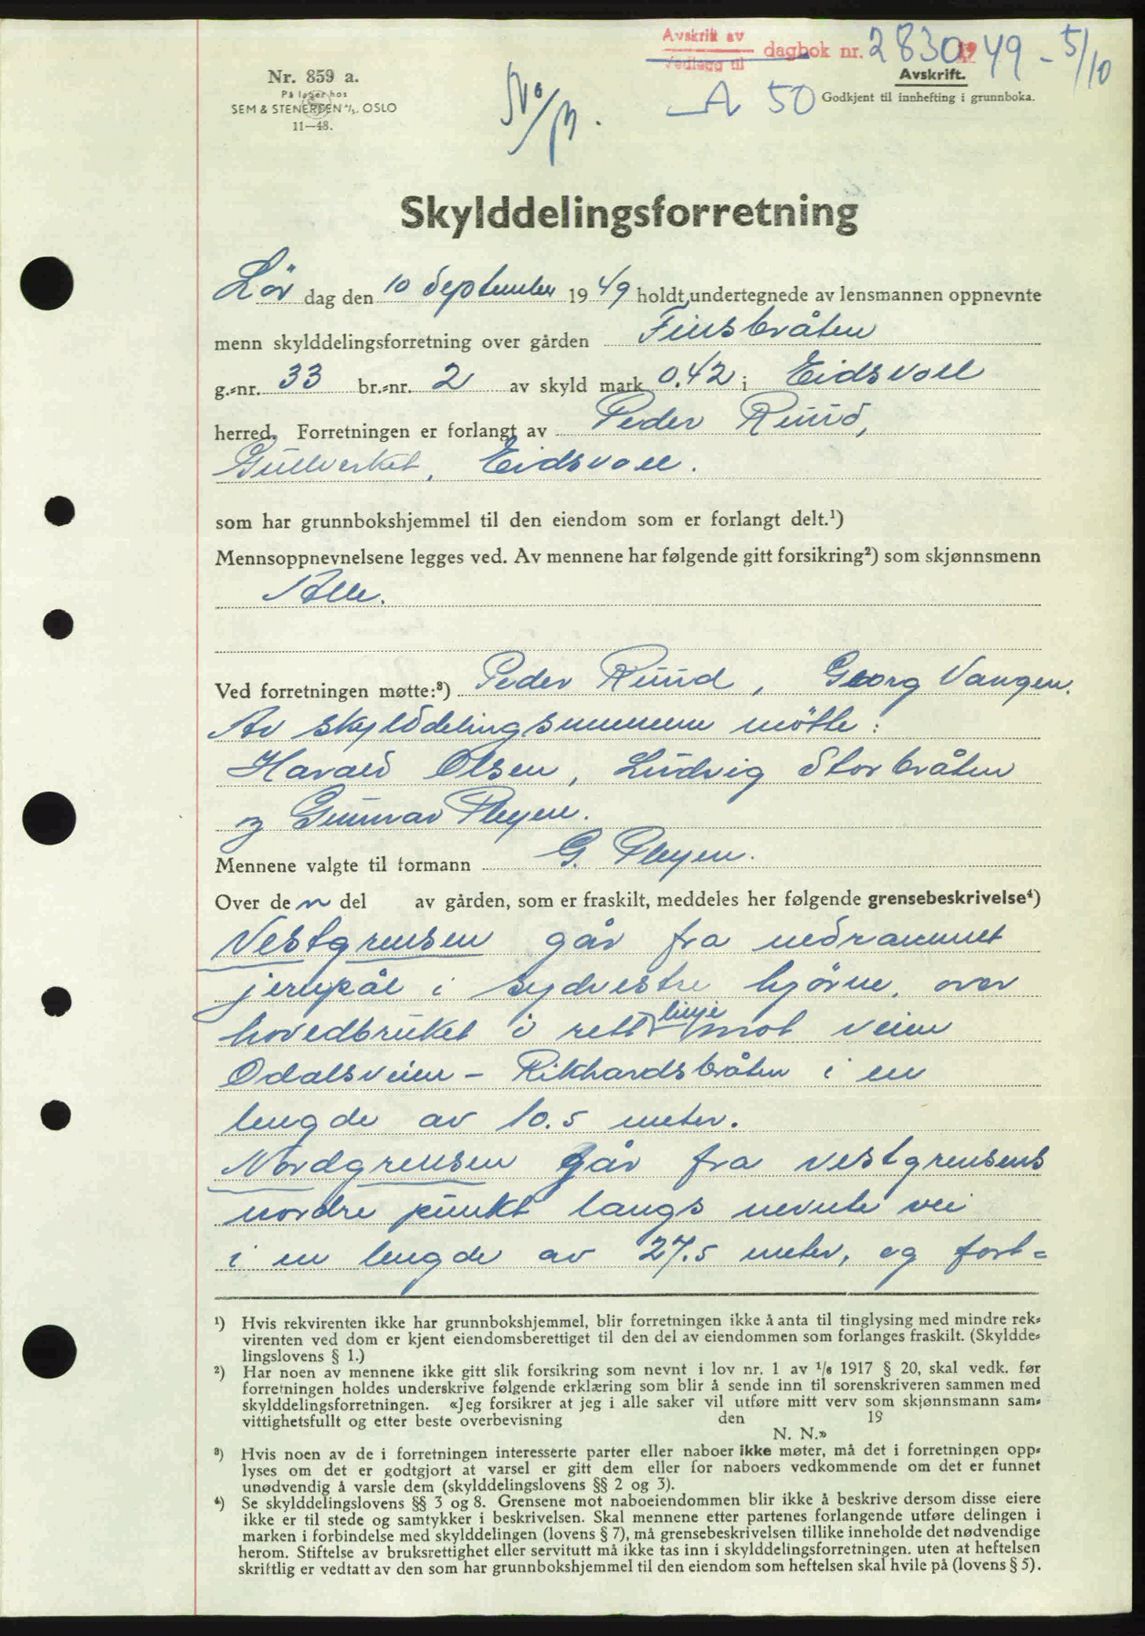 Avskrift av
Vedlegg til dagbok nr. 2830 19 49 - 5/10
Nr. 859 a.
På lager hos
SEM & STENERSEN A/S. OSLO
11—48.
Avskrift.
A 50 Godkjent til innhefting i grunnboka.
Skylddelingsforretning
Lör dag den 10 September 19 49 holdt undertegnede av lensmannen oppnevnte
menn skylddelingsforretning over gården Finsbråten
g.-nr. 33 br.-nr. 2 av skyld mark 0.42 i Eidsvoll
herred. Forretningen er forlangt av Peder Ruud,
Gullverket, Eidsvoll.
som har grunnbokshjemmel til den eiendom som er forlangt delt.¹)
Mennsoppnevnelsene legges ved. Av mennene har følgende gitt forsikring²) som skjønnsmenn
Alle.
Ved forretningen møtte:³) Peder Ruud, Georg Vangen.
Av skylddelingsmennene mötte:
Harald Olsen, Ludvig Storbråten
og Gunnar Pleyen.
Mennene valgte til formann G. Pleyen.
Over de n del av gården, som er fraskilt, meddeles her følgende grensebeskrivelse⁴)
Vestgrensen går fra nedrammet
jernpål i sydvestre hjörne, over
hovedbruket i rett linje mot veien
Odalsveien - Rikhardsbråten i en
lengde av 10.5 meter.
Nordgrensen går fra vestgrensens
nordre punkt langs nevnte vei
i en lengde av 27.5 meter, og fort=
¹) Hvis rekvirenten ikke har grunnbokshjemmel, blir forretningen ikke å anta til tinglysing med mindre rek-
virenten ved dom er kjent eiendomsberettiget til den del av eiendommen som forlanges fraskilt. (Skyldde-
lingslovens § 1.)
²) Har noen av mennene ikke gitt slik forsikring som nevnt i lov nr. 1 av 1/6 1917 § 20, skal vedk. før
forretningen holdes underskrive følgende erklæring som blir å sende inn til sorenskriveren sammen med
skylddelingsforretningen. «Jeg forsikrer at jeg i alle saker vil utføre mitt verv som skjønnsmann sam-
vittighetsfullt og etter beste overbevisning den 19
N. N.»
³) Hvis noen av de i forretningen interesserte parter eller naboer ikke møter, må det i forretningen opp-
lyses om det er godtgjort at varsel er gitt dem eller for naboers vedkommende om det er funnet
unødvendig å varsle dem (skylddelingslovens §§ 2 og 3).
⁴) Se skylddelingslovens §§ 3 og 8. Grensene mot naboeiendommen blir ikke å beskrive dersom disse eiere
ikke er til stede og samtykker i beskrivelsen. Skal mennene etter partenes forlangende utføre delingen i
marken i forbindelse med skylddelingen (lovens § 7), må grensebeskrivelsen tillike inneholde det nødvendige
herom. Stiftelse av bruksrettighet eller servitutt må ikke tas inn i skylddelingsforretningen. uten at heftelsen
skriftlig er vedtatt av den som har grunnbokshjemmel til den eiendom som heftelsen skal hvile på (lovens § 5).